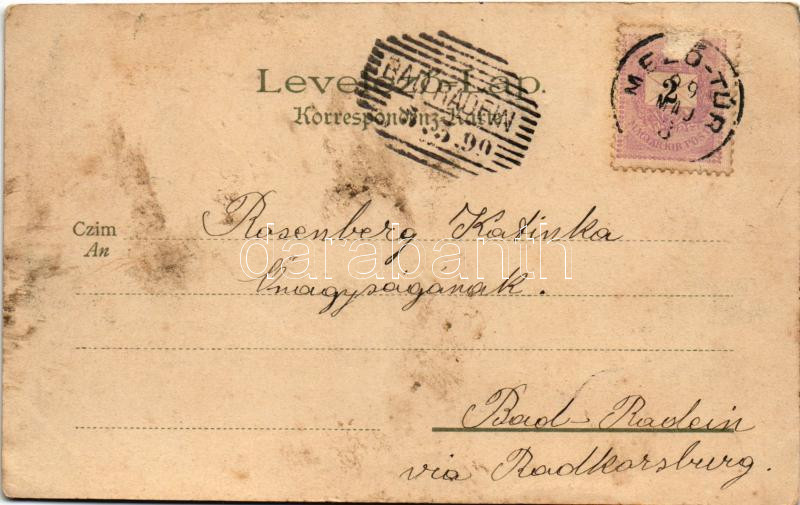 Levelező-Lap.
Korrespondenz-Karte
BAD RADEIN
MEZŐ-TÚR
99
MÁJ
2
MAGYAR KIR POSTA
Czim
An
Rosenberg Katinka
Őnagyságának.
Bad-Radein
via Radkersburg.
darabanth